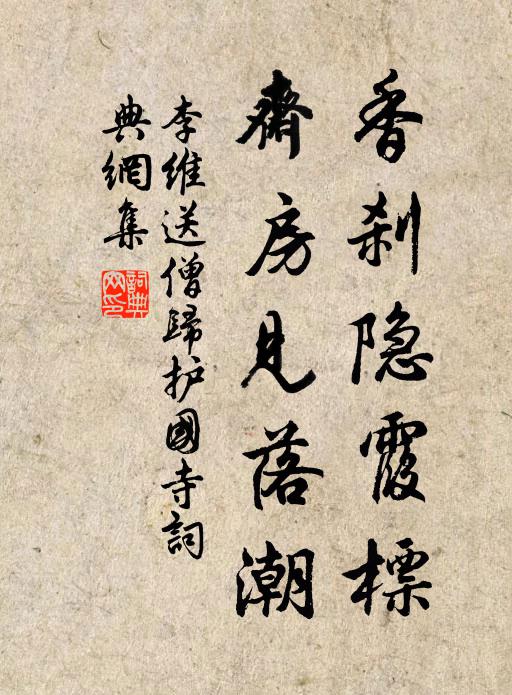 香刹隐霞標
齋房見落潮
李维送僧歸护國寺詞
典網集
詞典網印